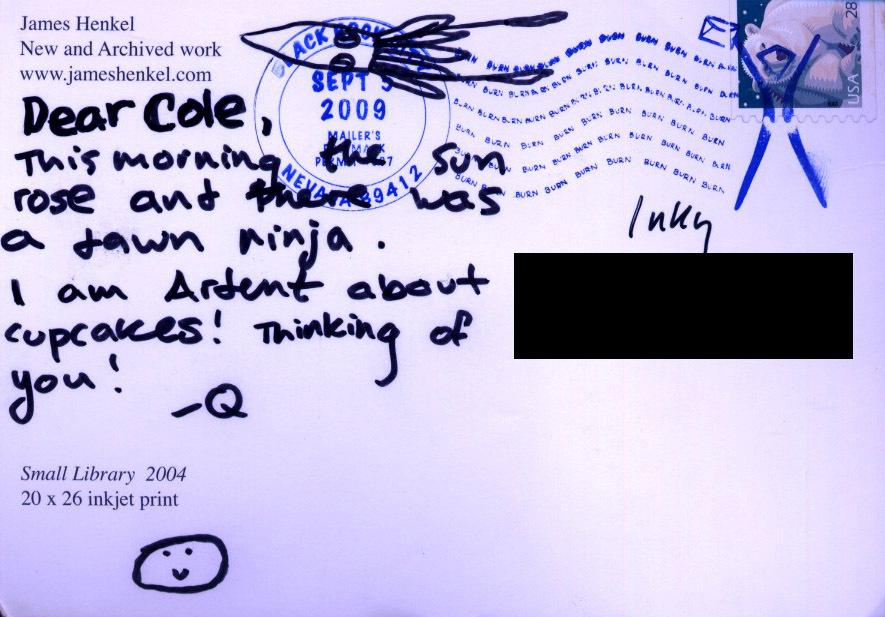 James Henkel
New and Archived work
www.jameshenkel.com
Dear Cole,
This morning the sun
rose and there was
a dawn ninja.
I am Ardent about
cupcakes! Thinking of
you!
-Q
Small Library 2004
20 x 26 inkjet print
BLACK ROCK
SEPT 5
2009
MAILER'S
PERMIT
NEVADA 89412
BURN BURN BURN BURN BURN BURN BURN BURN
BURN BURN BURN BURN BURN BURN BURN BURN
BURN BURN BURN BURN BURN BURN BURN BURN
BURN BURN BURN BURN BURN BURN BURN
BURN BURN BURN BURN BURN BURN BURN
BURN BURN BURN BURN BURN BURN BURN
28
USA
Inky